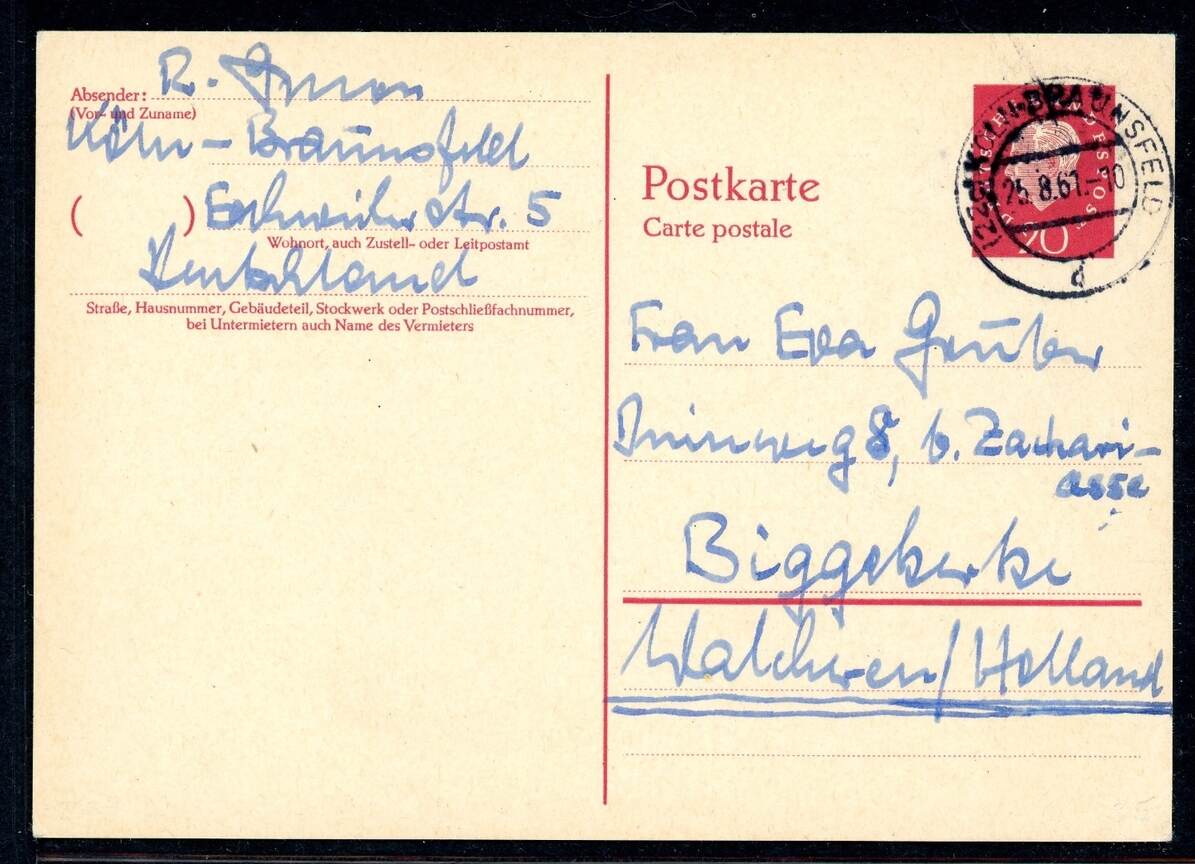 Absender: R.
(Vor- und Zuname)
Köln-Braunsfeld
( ) Eschweilerstr. 5
Wohnort, auch Zustell- oder Leitpostamt
Deutschland
Straße, Hausnummer, Gebäudeteil, Stockwerk oder Postschließfachnummer,
bei Untermietern auch Name des Vermieters
Postkarte
Carte postale
DEUTSCHE BUNDESPOST
20
(22c) KÖLN-BRAUNSFELD
25.8.61.-10
d
Frau Eva Gruber
Duinweg 8, b. Zachari-
asse
Biggekerke
Walcheren/Holland